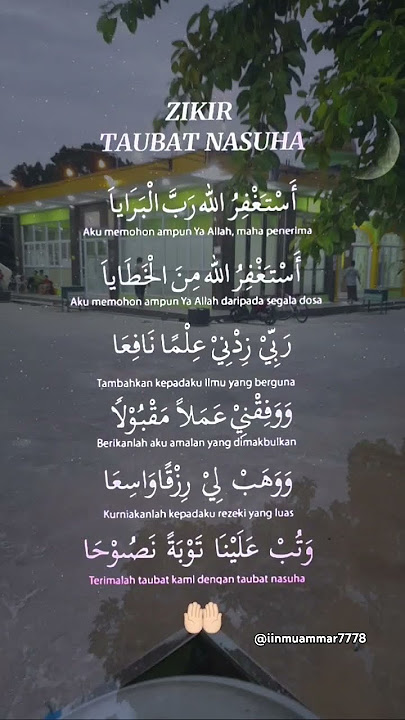 ZIKIR
TAUBAT NASUHA
أَسْتَغْفِرُ الله رَبَّ الْبَرَاياَ
Aku memohon ampun Ya Allah, maha penerima
أَسْتَغْفِرُ الله مِنَ الْخَطَاياَ
Aku memohon ampun Ya Allah daripada segala dosa
رَبِّيْ زِدْنِيْ عِلْمًا نَافِعَا
Tambahkan kepadaku Ilmu yang berguna
وَوَفِقْنِيْ عَمَلاً مَقْبُوْلًا
Berikanlah aku amalan yang dimakbulkan
وَوَهَبْ لِيْ رِزْقًاوَاسِعَا
Kurniakanlah kepadaku rezeki yang luas
وَتُبْ عَلَيْنَا تَوْبَةً نَصُوْحَا
Terimalah taubat kami dengan taubat nasuha
@iinmuammar7778